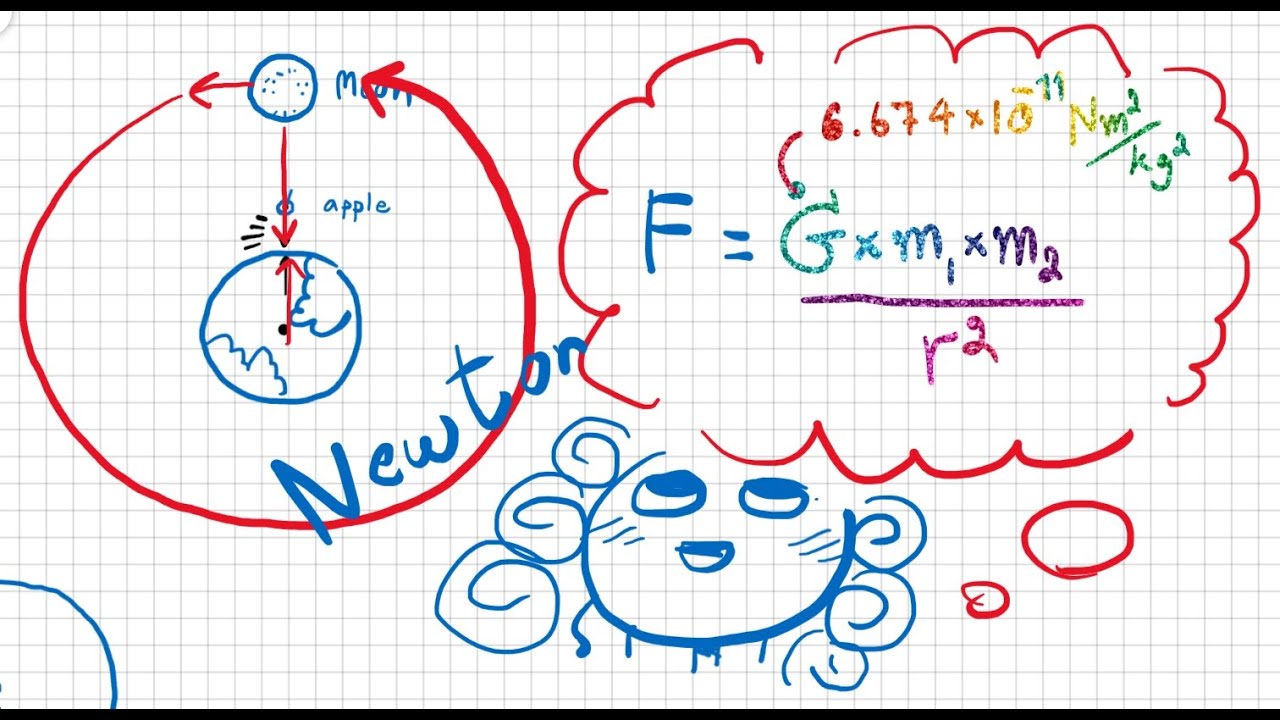 Moon
apple
Newton
6.674×10⁻¹¹ Nm²/kg²
F = G×m₁×m₂
r²